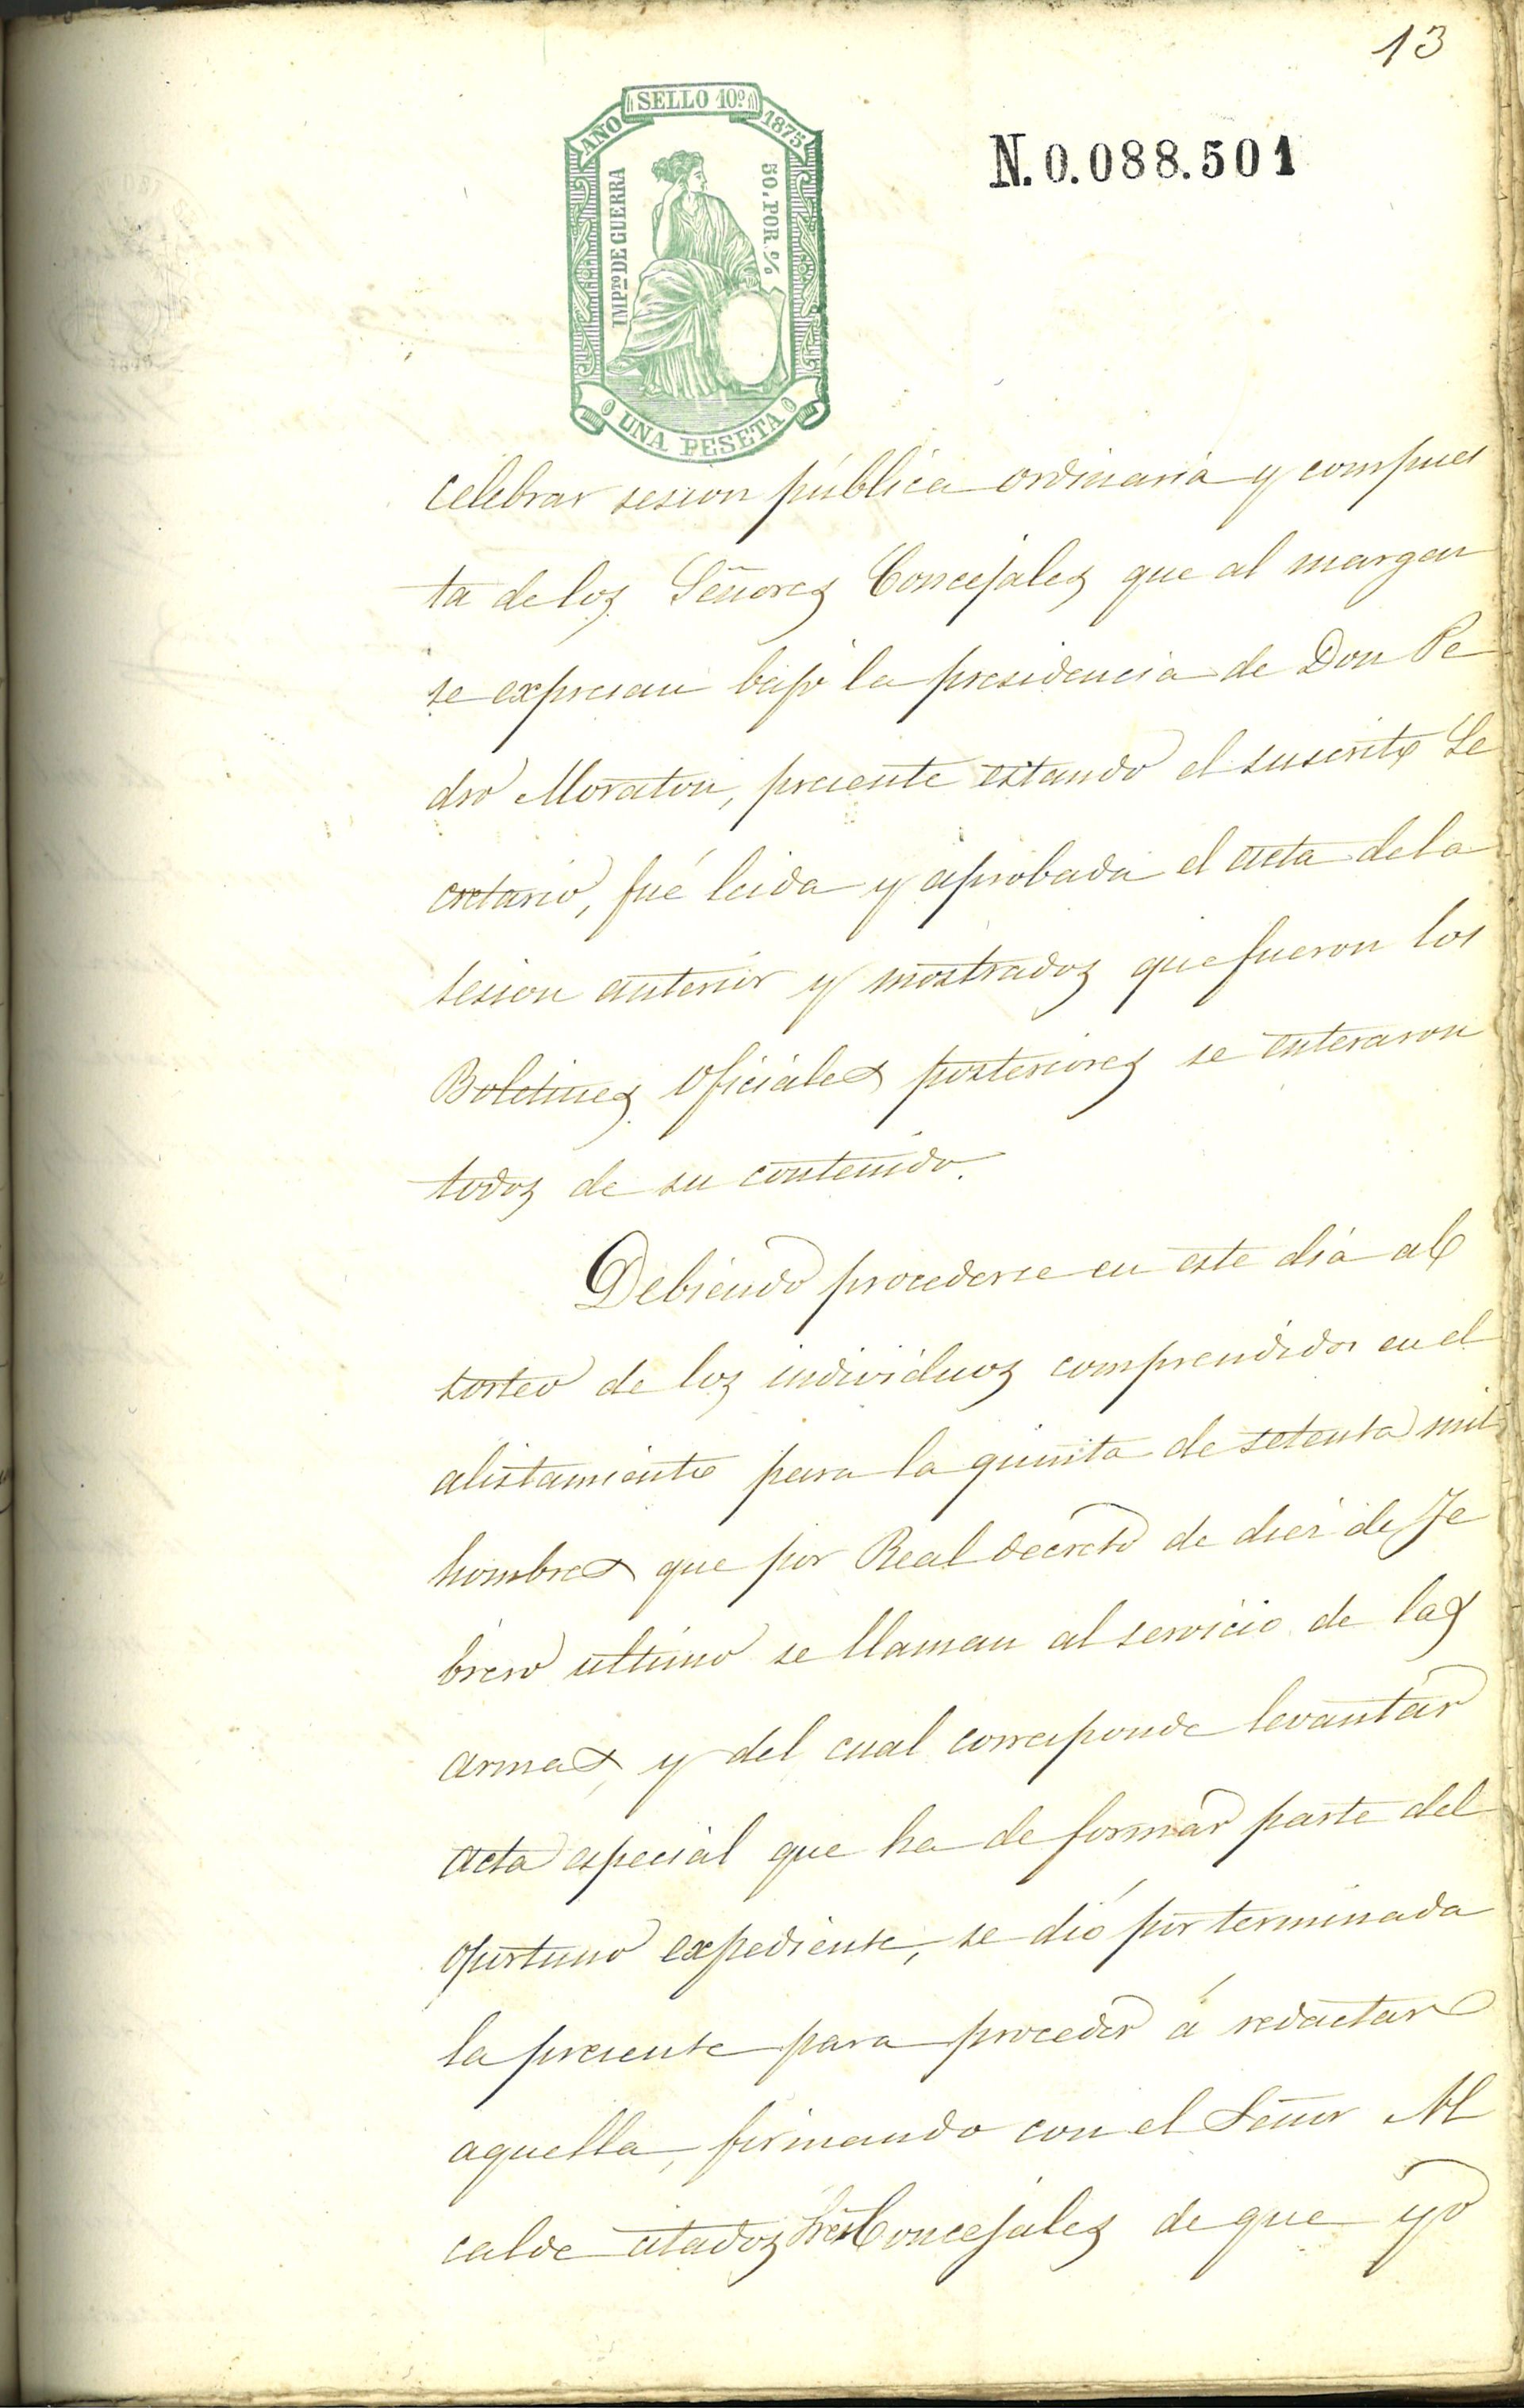 13
SELLO 10º
AÑO 1875
N.0.088.501
IMPTO DE GUERRA
50. POR. %
UNA PESETA
celebrar sesion pública ordinaria y compues
ta de los Señores Concejales que al margen
se expresan bajo la presidencia de Don Pe
dro Moraton, presente estando el suscrito Se
cretario, fué leida y aprobada el acta de la
sesion anterior y mostrados que fueron los
Boletines Oficiales posteriores se enteraron
todos de su contenido.
Debiendo procederse en este dia al
sorteo de los individuos comprendidos en el
alistamiento para la quinta de setenta mil
hombres que por Real decreto de diez de Fe
brero ultimo se llaman al servicio de las
armas, y del cual corresponde levantar
acta especial que ha de formar parte del
oportuno expediente, se dió por terminada
la presente para proceder á redactar
aquella, firmando con el Señor Al
calde citados Sres Concejales de que yo